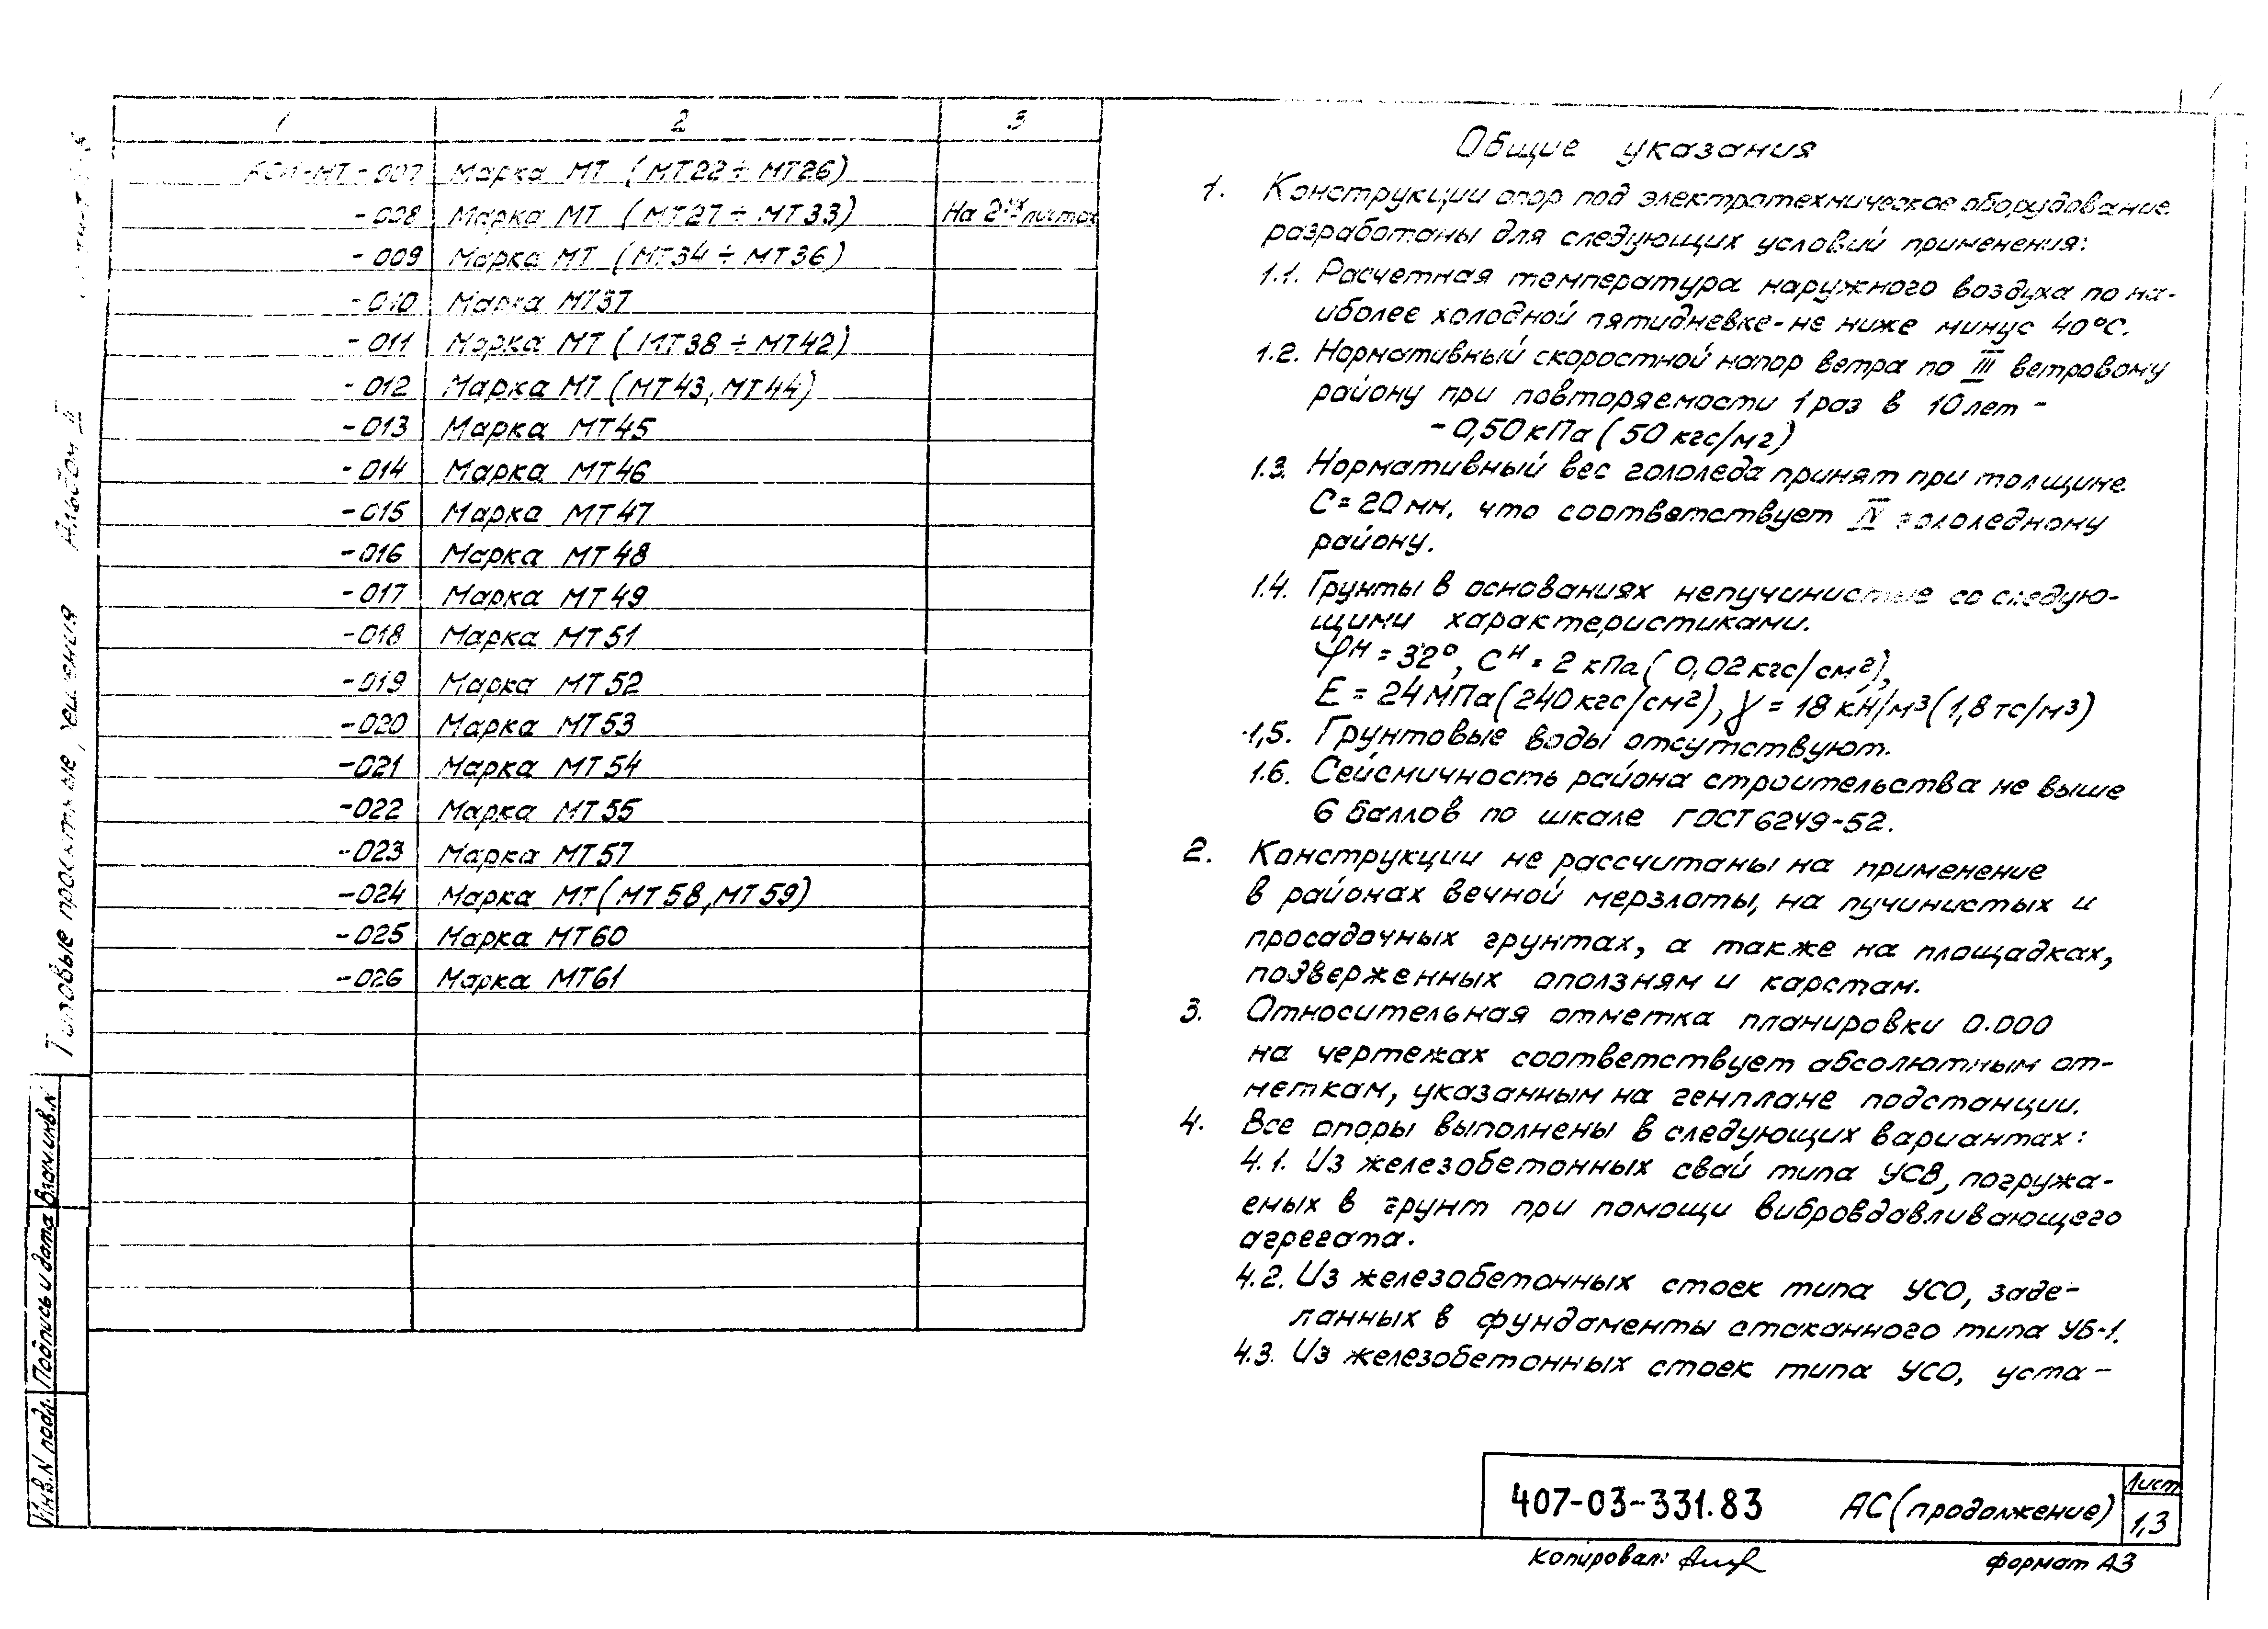 1 2 3
-007 Марка МТ (МТ22÷МТ26)
-008 Марка МТ (МТ27÷МТ33) На 2-ух листах
-009 Марка МТ (МТ34÷МТ36)
-010 Марка МТ37
-011 Марка МТ (МТ38÷МТ42)
-012 Марка МТ (МТ43, МТ44)
-013 Марка МТ45
-014 Марка МТ46
-015 Марка МТ47
-016 Марка МТ48
-017 Марка МТ49
-018 Марка МТ51
-019 Марка МТ52
-020 Марка МТ53
-021 Марка МТ54
-022 Марка МТ55
-023 Марка МТ57
-024 Марка МТ (МТ58, МТ59)
-025 Марка МТ60
-026 Марка МТ61
Типовые проектные решения Альбом II
Взам.инв.N
Подпись и дата
Инв.N подл.
Общие указания
1. Конструкции опор под электротехническое оборудование
разработаны для следующих условий применения:
1.1. Расчетная температура наружного воздуха по на-
иболее холодной пятидневке-не ниже минус 40°С.
1.2. Нормативный скоростной напор ветра по III ветровому
району при повторяемости 1 раз в 10 лет -
- 0,50 кПа (50 кгс/м2)
1.3. Нормативный вес гололеда принят при толщине
С = 20 мм, что соответствует IV гололедному
району.
1.4. Грунты в основаниях непучинистые со следую-
щими характеристиками.
φн = 32°, Сн = 2 кПа (0,02 кгс/см2),
Е = 24 МПа (240 кгс/см2), γ = 18 кН/м3 (1,8 тс/м3)
1,5. Грунтовые воды отсутствуют.
1.6. Сейсмичность района строительства не выше
6 баллов по шкале ГОСТ 6249-52.
2. Конструкции не рассчитаны на применение
в районах вечной мерзлоты, на пучинистых и
просадочных грунтах, а также на площадках,
подверженных оползням и карстам.
3. Относительная отметка планировки 0.000
на чертежах соответствует абсолютным от-
меткам, указанным на генплане подстанции.
4. Все опоры выполнены в следующих вариантах:
4.1. Из железобетонных свай типа УСВ, погружа-
емых в грунт при помощи вибровдавливающего
агрегата.
4.2. Из железобетонных стоек типа УСО, заде-
ланных в фундаменты стаканного типа УБ-1.
4.3. Из железобетонных стоек типа УСО, уста-
407-03-331.83 АС (продолжение)
Лист
1,3
Копировал:
Формат А3